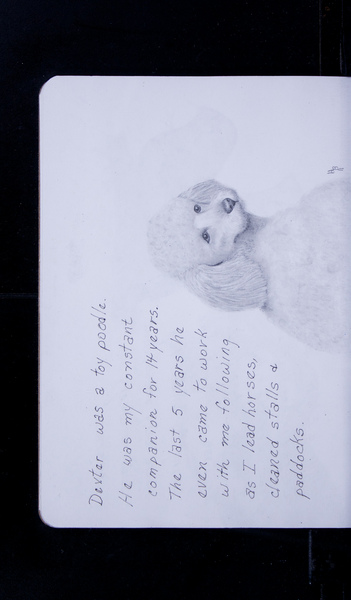 Dexter was a toy poodle.
He was my constant
companion for 14 years.
The last 5 years he
even came to work
with me following
as I lead horses,
cleaned stalls &
paddocks.